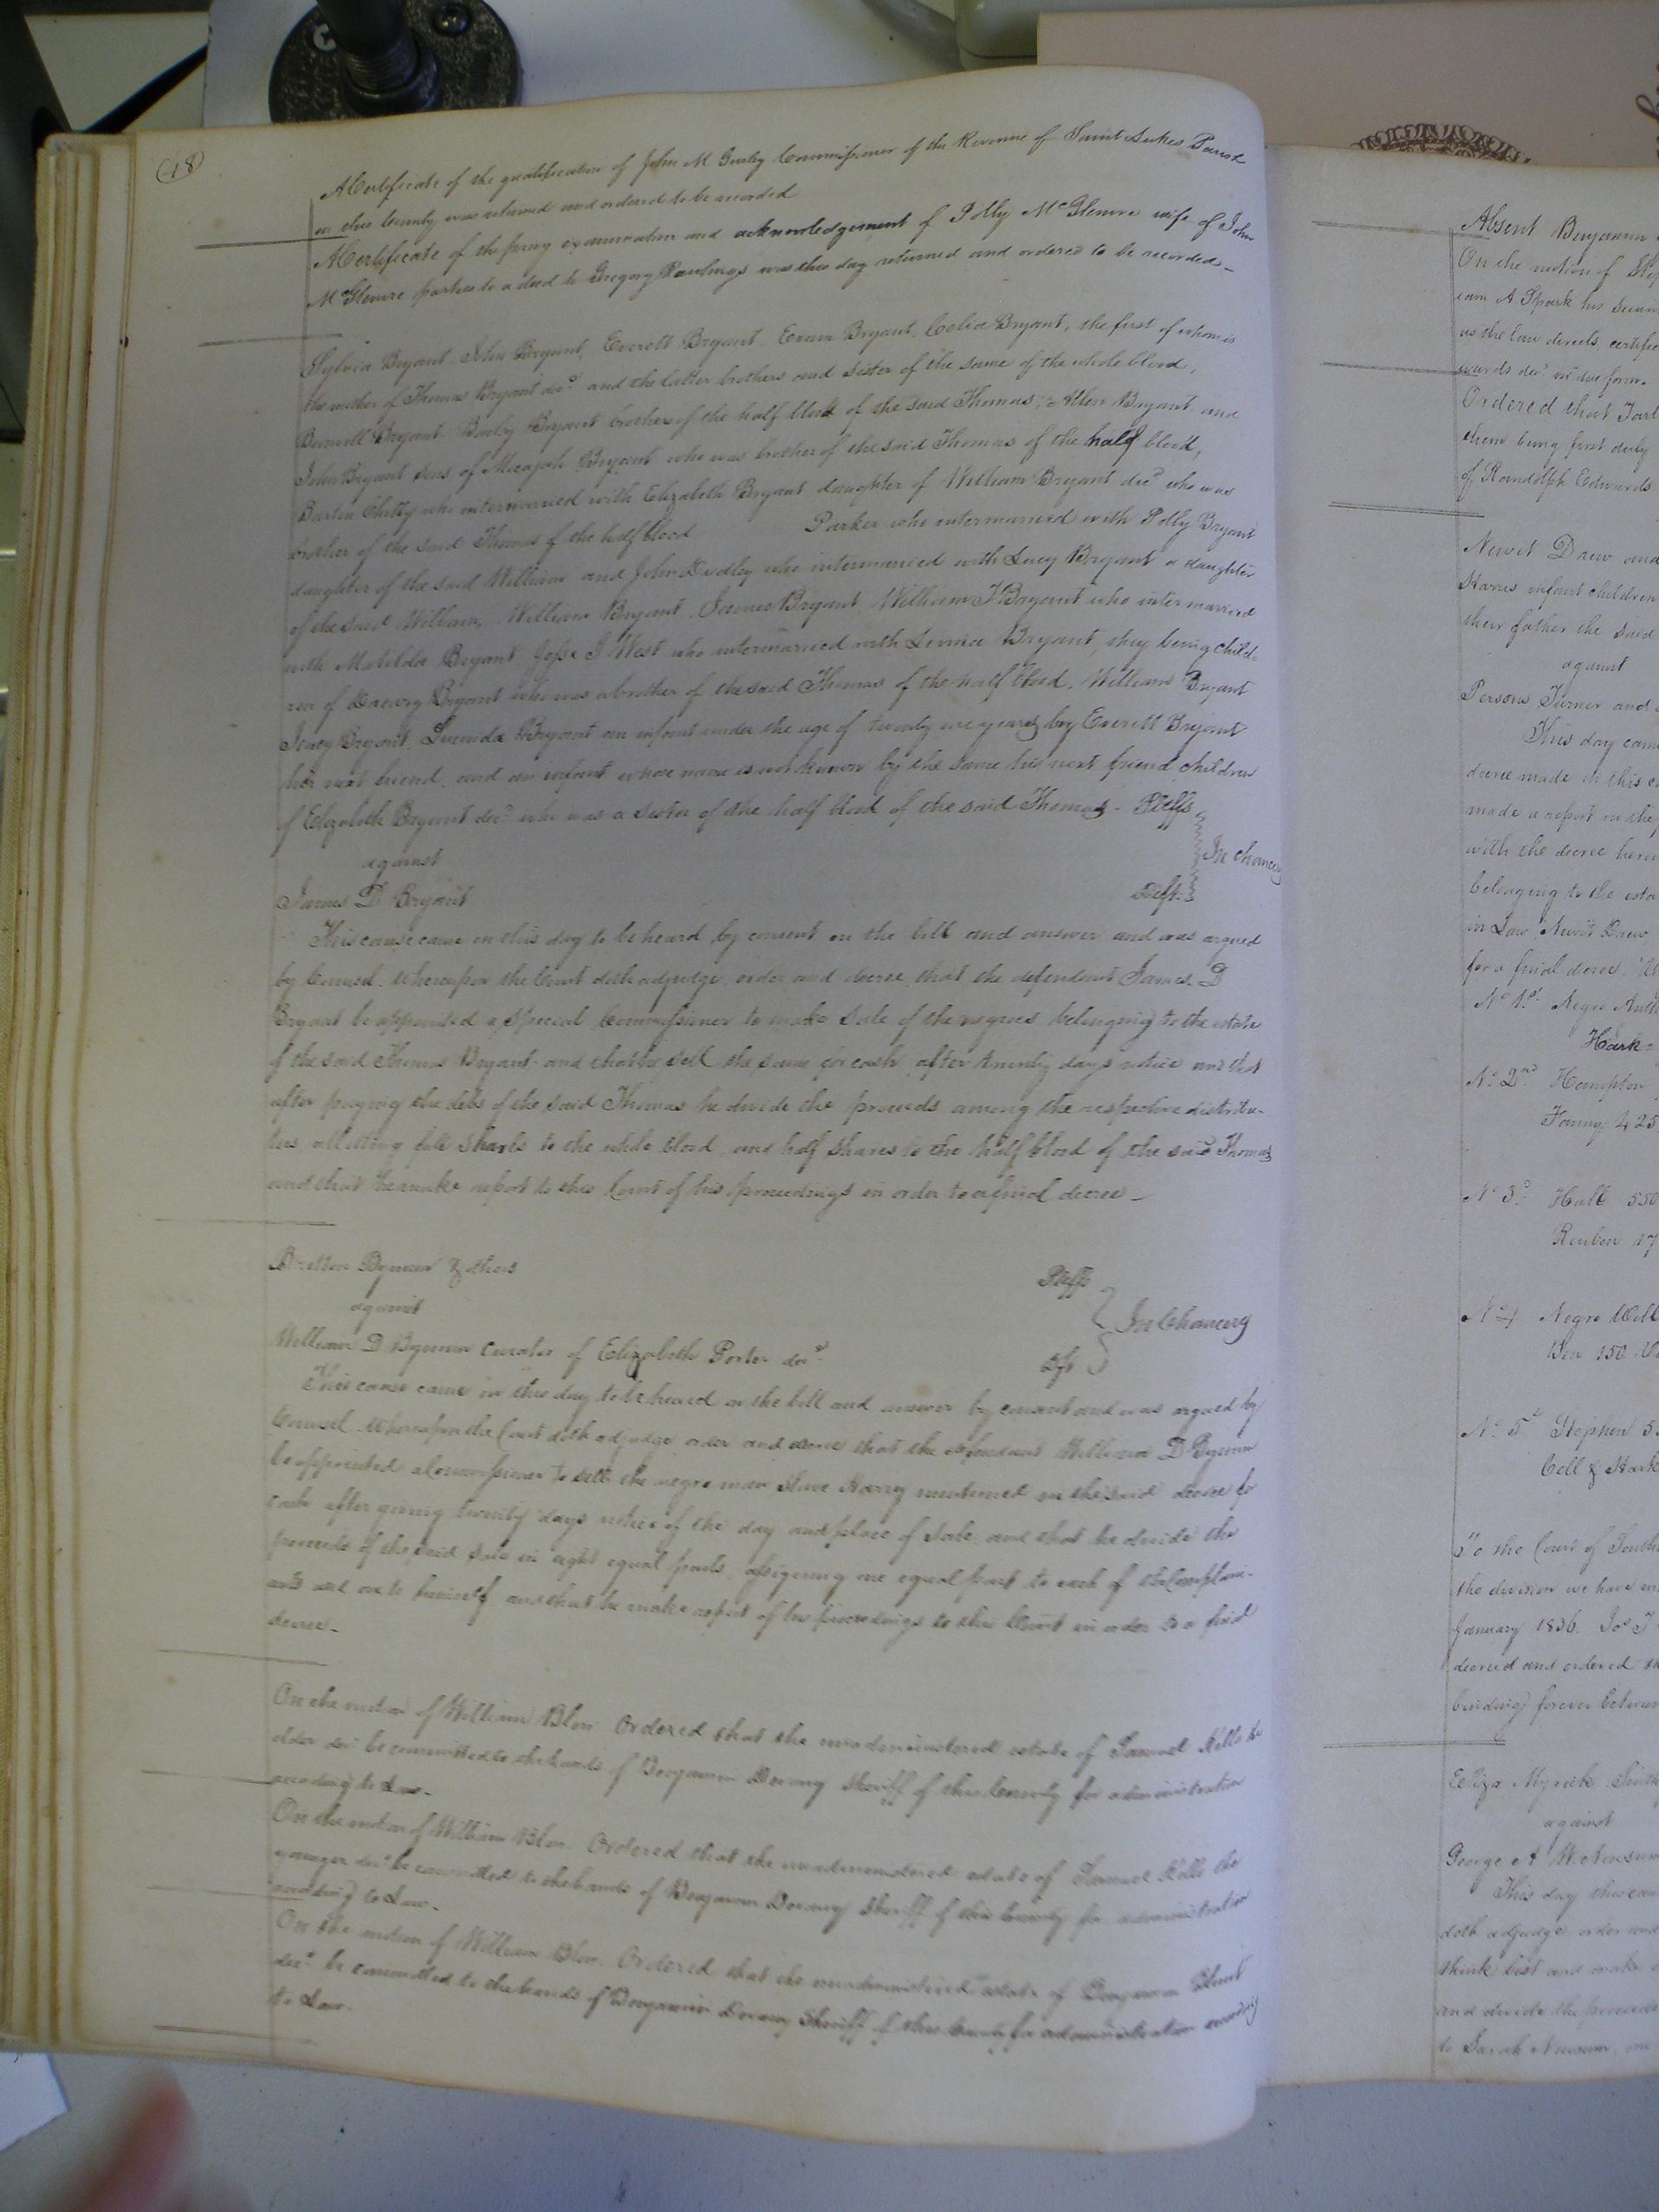 (48)
A Certificate of the qualification of John M Gurley Commissioner of the Revenue of Saint Lukes Parish
in this County was returned and ordered to be recorded
A Certificate of the privy examination and acknowledgement of Polly McGlemre wife of John
McGlemre parties to a deed to Gregory Rawlings was this day returned and ordered to be recorded –
Sylvia Bryant John Bryant, Everett Bryant Bryant Celia Bryant, the first of whom is
the mother of Thomas Bryant decd. and the latter brothers and sister of the same of the whole blood,
Burwell Bryant Bryant brothers of the half blood of the said Thomas, Allen Bryant and
John Bryant sons of Micajah Bryant who was brother of the said Thomas of the half blood,
Chitty who intermarried with Elizabeth Bryant daughter of William Bryant decd who was
brother of the said Thomas of the half blood Parker who intermarried with Polly Bryant
daughter of the said William and John Dudley who intermarried with Lucy Bryant a daughter
of the said William, William Bryant, James Bryant, William Bryant who intermarried
with Matilda Bryant, Jesse J West who intermarried with Bryant, they being child-
ren of Bryant who was a brother of the said Thomas of the half blood, William Bryant
Bryant, Lucinda Bryant an infant under the age of twenty one years by Everett Bryant
her next friend, and an infant whose name is unknown by the same his next friend children
of Elizabeth Bryant decd who was a sister of the half blood of the said Thomas – Pltffs
against In chancery
James D Bryant Deft.
This cause came on this day to be heard by consent on the bill and answer and was argued
by Counsel. Whereupon the Court doth adjudge, order and decree, that the defendant James D
Bryant be appointed a special Commissioner to make sale of the negroes belonging to the estate
of the said Thomas Bryant and that he sell the same for cash after twenty days notice and that
after paying the debts of the said Thomas he divide the proceeds among the respective distribu-
tees allotting full shares to the whole blood, and half shares to the half blood of the said Thomas
and that he make report to this Court of his proceedings in order to a final decree –
Bynum & others Pltffs
against In Chancery
William D Bynum Curator of Elizabeth Porter decd. Dft
This cause came on this day to be heard on the bill and answer by consent and was argued by
Counsel. Whereupon the Court doth adjudge order and decree that the defendant William D Bynum
be appointed a Commissioner to sell the negro man slave Harry mentioned in the said decree for
cash after giving twenty days notice of the day and place of sale, and that he divide the
proceeds of the said sale in eight equal parts, assigning one equal part to each of the Complain-
ants and one to himself, and that he make report of his proceedings to this Court in order to a final
decree –
On the motion of William Blow Ordered that the unadministered estate of Samuel Kello the
elder decd be committed to the hands of Benjamin Devany Sheriff of this County for administration
according to Law –
On the motion of William Blow Ordered that the unadministered estate of Samuel Kello the
younger decd be committed to the hands of Benjamin Devany Sheriff of this County for administration
according to Law –
On the motion of William Blow Ordered that the unadministered estate of Benjamin Blunt
decd be committed to the hands of Benjamin Devany Sheriff of this County for administration according
to Law.
Absent Benjamin
On the motion of
iam A Spark his
as the law directs, certific
wards decd in due form.
Ordered that
them being first duly
of Randolph Edwards
Newit Drew and
Harris infant children
their father the said
against
Persons Turner and
This day came
decree made in this
made a report in the
with the decree
belonging to the esta
in Law Newit Drew
for a final decree.
No 1st Negro
Hark
No 2nd Hampton
Fanny 425
No 3d Hall 550
Reuben 17
No 4 Negro Will
Ben 150
No 5th Stephen 5
Cell & Hark
To the Court of South
the division we have
January 1836. Jos J
decreed and ordered
binding forever between
Eliza Myrick
against
George A W Newsum
This day this
doth adjudge order and
think best and make
and divide the proceeds
to Sarah Newsum, one